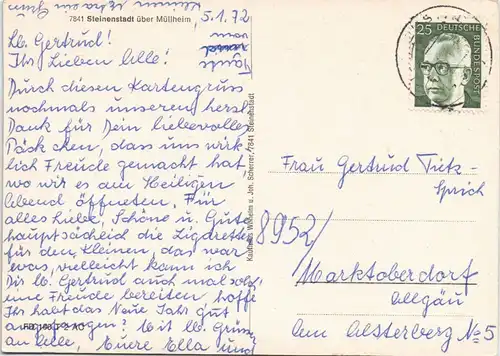 7841 Steinenstadt über Müllheim
5.1.72
Lb. Gertrud!
Ihr Lieben Alle!
Durch diesen Kartengruss
nochmals unseren herzl.
Dank für Dein liebevolles
Päckchen, dass uns wirk
lich Freude gemacht hat,
wo wir es am Heiligen
Abend öffneten. Für
alles Liebe, Schöne u. Gute
hauptsächlich die
für den Kleinen, das war
was, vielleicht kann ich
Dir lb. Gertrud auch mal solch
eine Freude bereiten, hoffe
Ihr habt das Neue Jahr gut
angefangen? Mit lb. Grüssen
an Alle, Eure Ella und
Kaufhaus Wilhelm u. Joh. Scherrer, 7841 Steinenstadt
25 DEUTSCHE BUNDESPOST
Frau Gertrud Tietz-
Sprich
8952/
Marktoberdorf
Allgäu
Am Alsterberg No 5